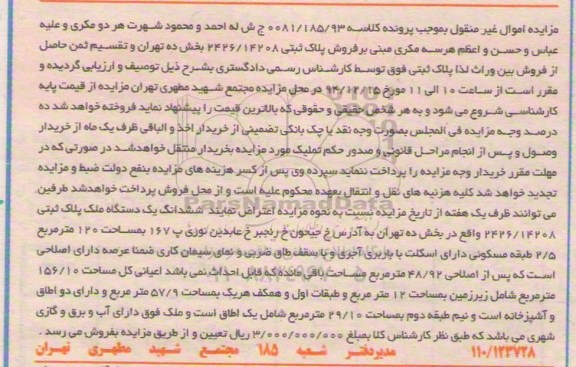 مزایده اموال غیر منقول بموجب پرونده کلاسه ۰۰۸۱/۱۸۵/۹۳ ج ش له احمد و محمود شهرت هر دو مکری و علیه
عباس و حسن و اعظم هرسه مکری مبنی برفروش پلاک ثبتی ۲۴۲۶/۱۴۲۰۸ بخش ده تهران و تقسیم ثمن حاصل
از فروش بین وراث لذا پلاک ثبتی فوق توسط کارشناس رسمی دادگستری بشرح ذیل توصیف و ارزیابی گردیده و
مقرر است از ساعت ۱۰ الی ۱۱ مورخ ۹۴/۱۲/۱۵ در محل مزایده مجتمع شهید مطهری تهران مزایده از قیمت پایه
کارشناسی شروع می شود و به هر شخص حقیقی و حقوقی که بالاترین قیمت را پیشنهاد نماید فروخته خواهد شد ده
درصد وجه مزایده فی المجلس بصورت وجه نقد یا چک بانکی تضمینی از خریدار اخذ و الباقی ظرف یک ماه از خریدار
وصول و پس از انجام مراحل قانونی و صدور حکم تملیک مورد مزایده بخریدار منتقل خواهدشد در صورتی که در
مهلت مقرر خریدار وجه مزایده را پرداخت ننماید سپرده وی پس از کسر هزینه های مزایده بنفع دولت ضبط و مزایده
تجدید خواهد شد کلیه هزینه های نقل و انتقال بعهده محکوم علیه است و از محل فروش پرداخت خواهدشد طرفین
می توانند ظرف یک هفته از تاریخ مزایده نسبت به نحوه مزایده اعتراض نمایند ششدانگ یک دستگاه ملک پلاک ثبتی
۲۴۲۶/۱۴۲۰۸ واقع در بخش ده تهران به آدرس خ جیحون خ رنجبر خ عابدین نوری پ ۱۶۷ بمساحت ۱۲۰ مترمربع
۲/۵ طبقه مسکونی دارای اسکلت با باربری آجری و با سقف طاق ضربی و نمای سیمان کاری ضمنا عرصه دارای اصلاحی
است که پس از اصلاحی ۴۸/۹۲ مترمربع مساحت باقی مانده که قابل احداث نمی باشد اعیانی کل مساحت ۱۵۶/۱۰
مترمربع شامل زیرزمین بمساحت ۱۲ متر مربع و طبقات اول و همکف هریک بمساحت ۵۷/۹ متر مربع و دارای دو اطاق
و آشپزخانه است و نیم طبقه دوم بمساحت ۲۹/۱۰ مترمربع شامل یک اطاق است و ملک فوق دارای آب و برق و گازی
شهری می باشد که طبق نظر کارشناس کلا بمبلغ ۳/۰۰۰/۰۰۰/۰۰۰ ریال تعیین و از طریق مزایده بفروش می رسد .
۱۱۰/۱۲۳۷۲۸ مدیردفتر شعبه ۱۸۵ مجتمع شهید مطهری تهران
ParsNamadData